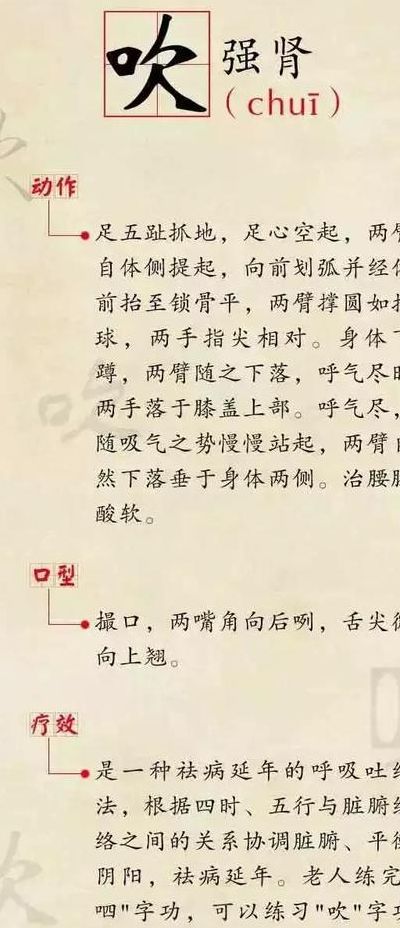 吹 强肾
（chuī）
动作
足五趾抓地，足心空起，两臂
自体侧提起，向前划弧并经体
前抬至锁骨平，两臂撑圆如抱
球，两手指尖相对。身体下
蹲，两臂随之下落，呼气尽时
两手落于膝盖上部。呼气尽，
随吸气之势慢慢站起，两臂自
然下落垂于身体两侧。治腰腿
酸软。
口型
撮口，两嘴角向后咧，舌尖微
向上翘。
疗效
是一种祛病延年的呼吸吐纳
法，根据四时、五行与脏腑经
络之间的关系协调脏腑、平衡
阴阳，祛病延年。老人练完
呬"字功，可以练习"吹"字功